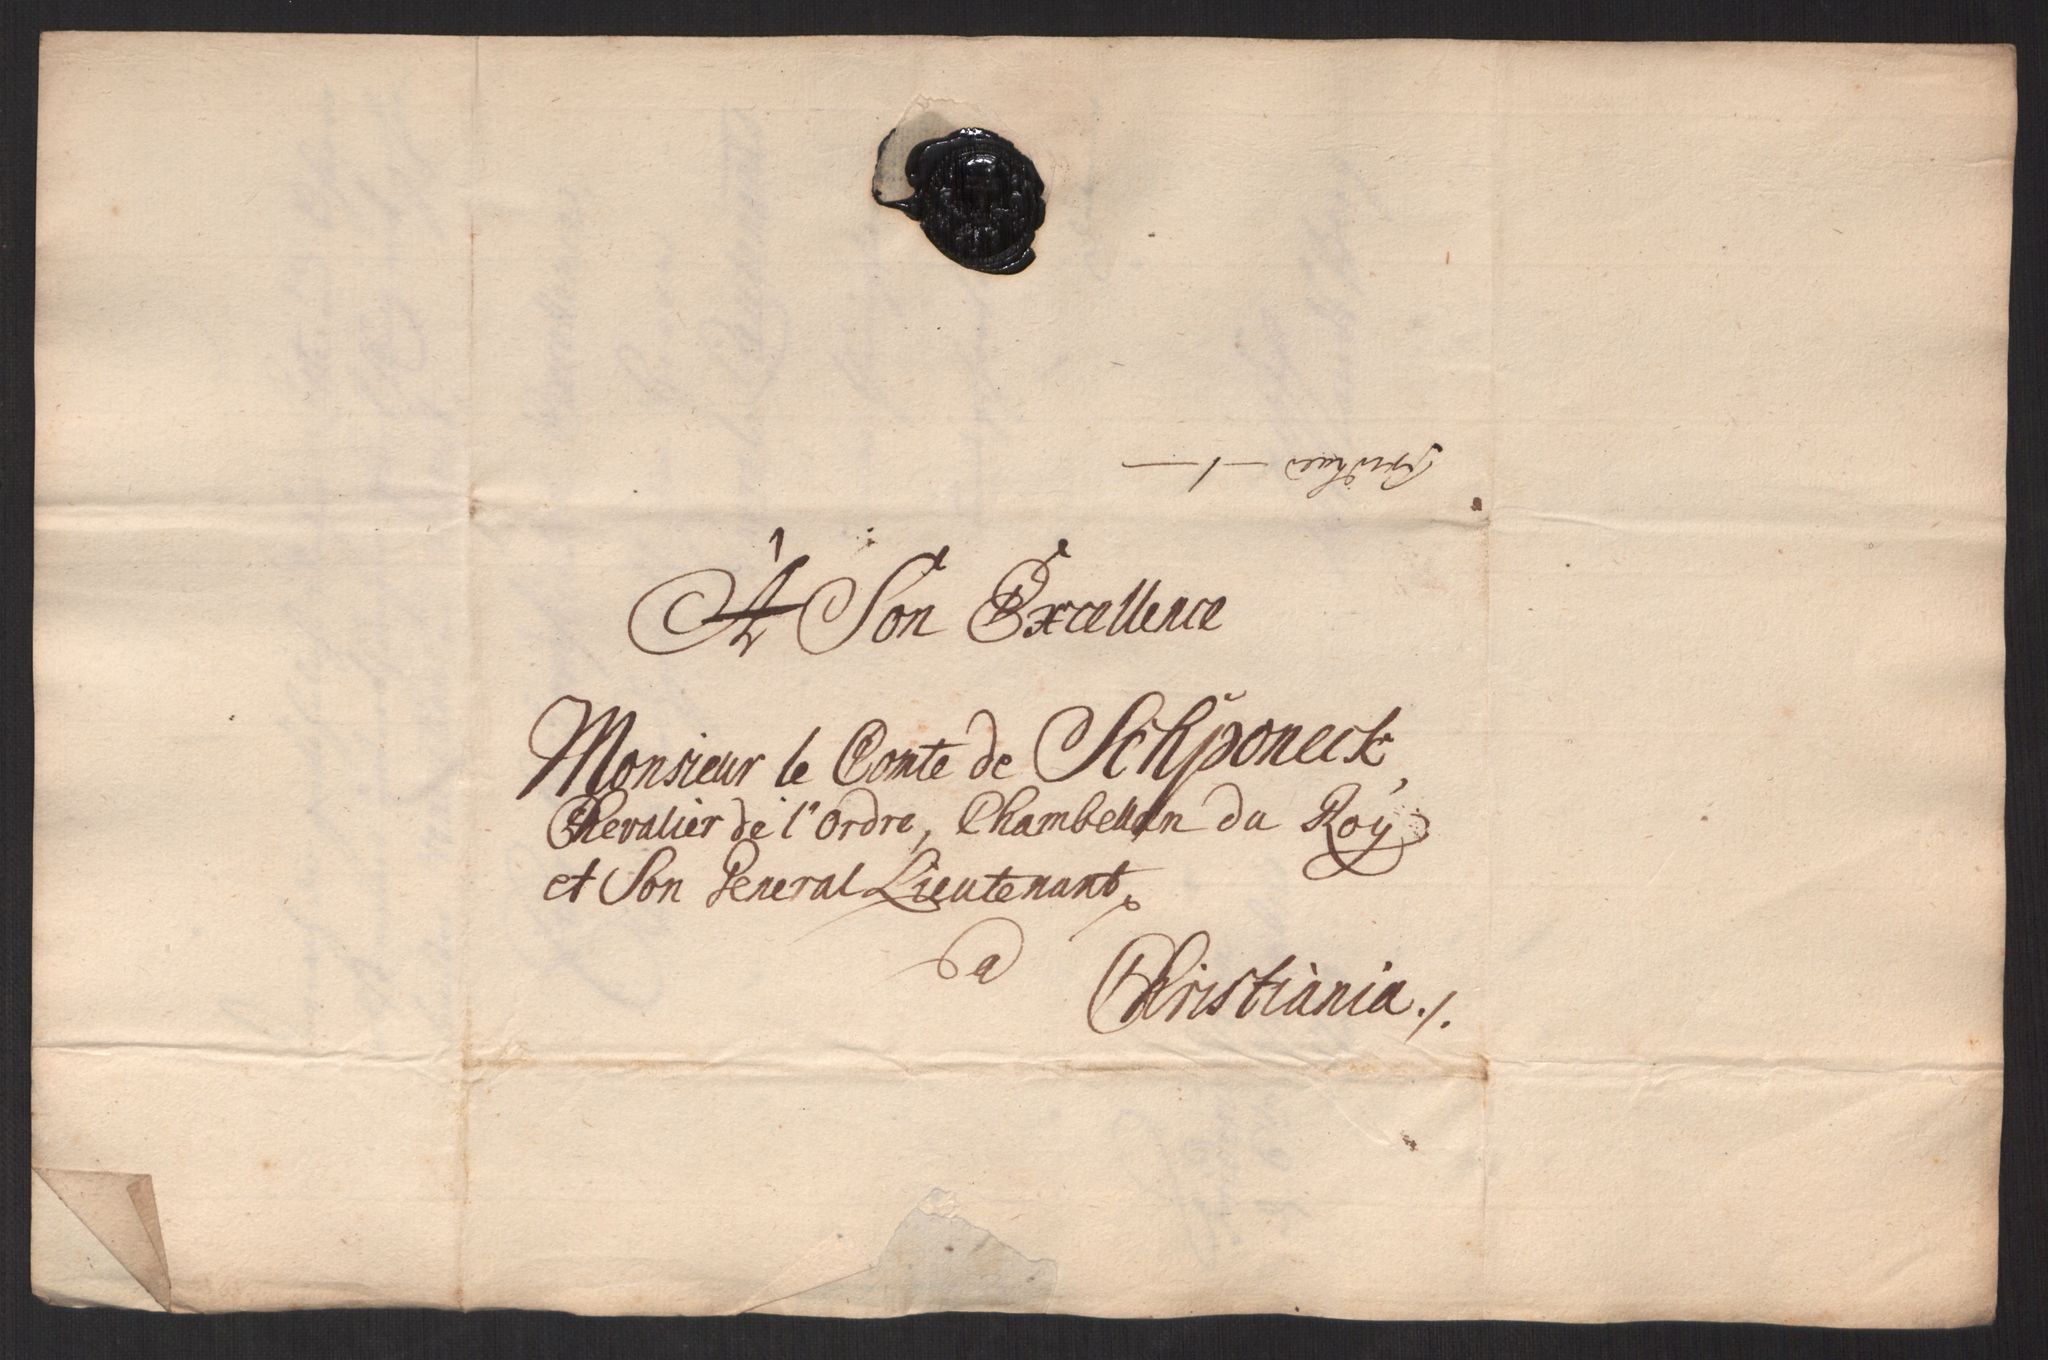 A Son Excellence
Monsieur le Conte de Schponeck,
Chevalier de l'ordre, Chambellan du Roÿ
et Son General Lieutenant,
a
Christiània ./.